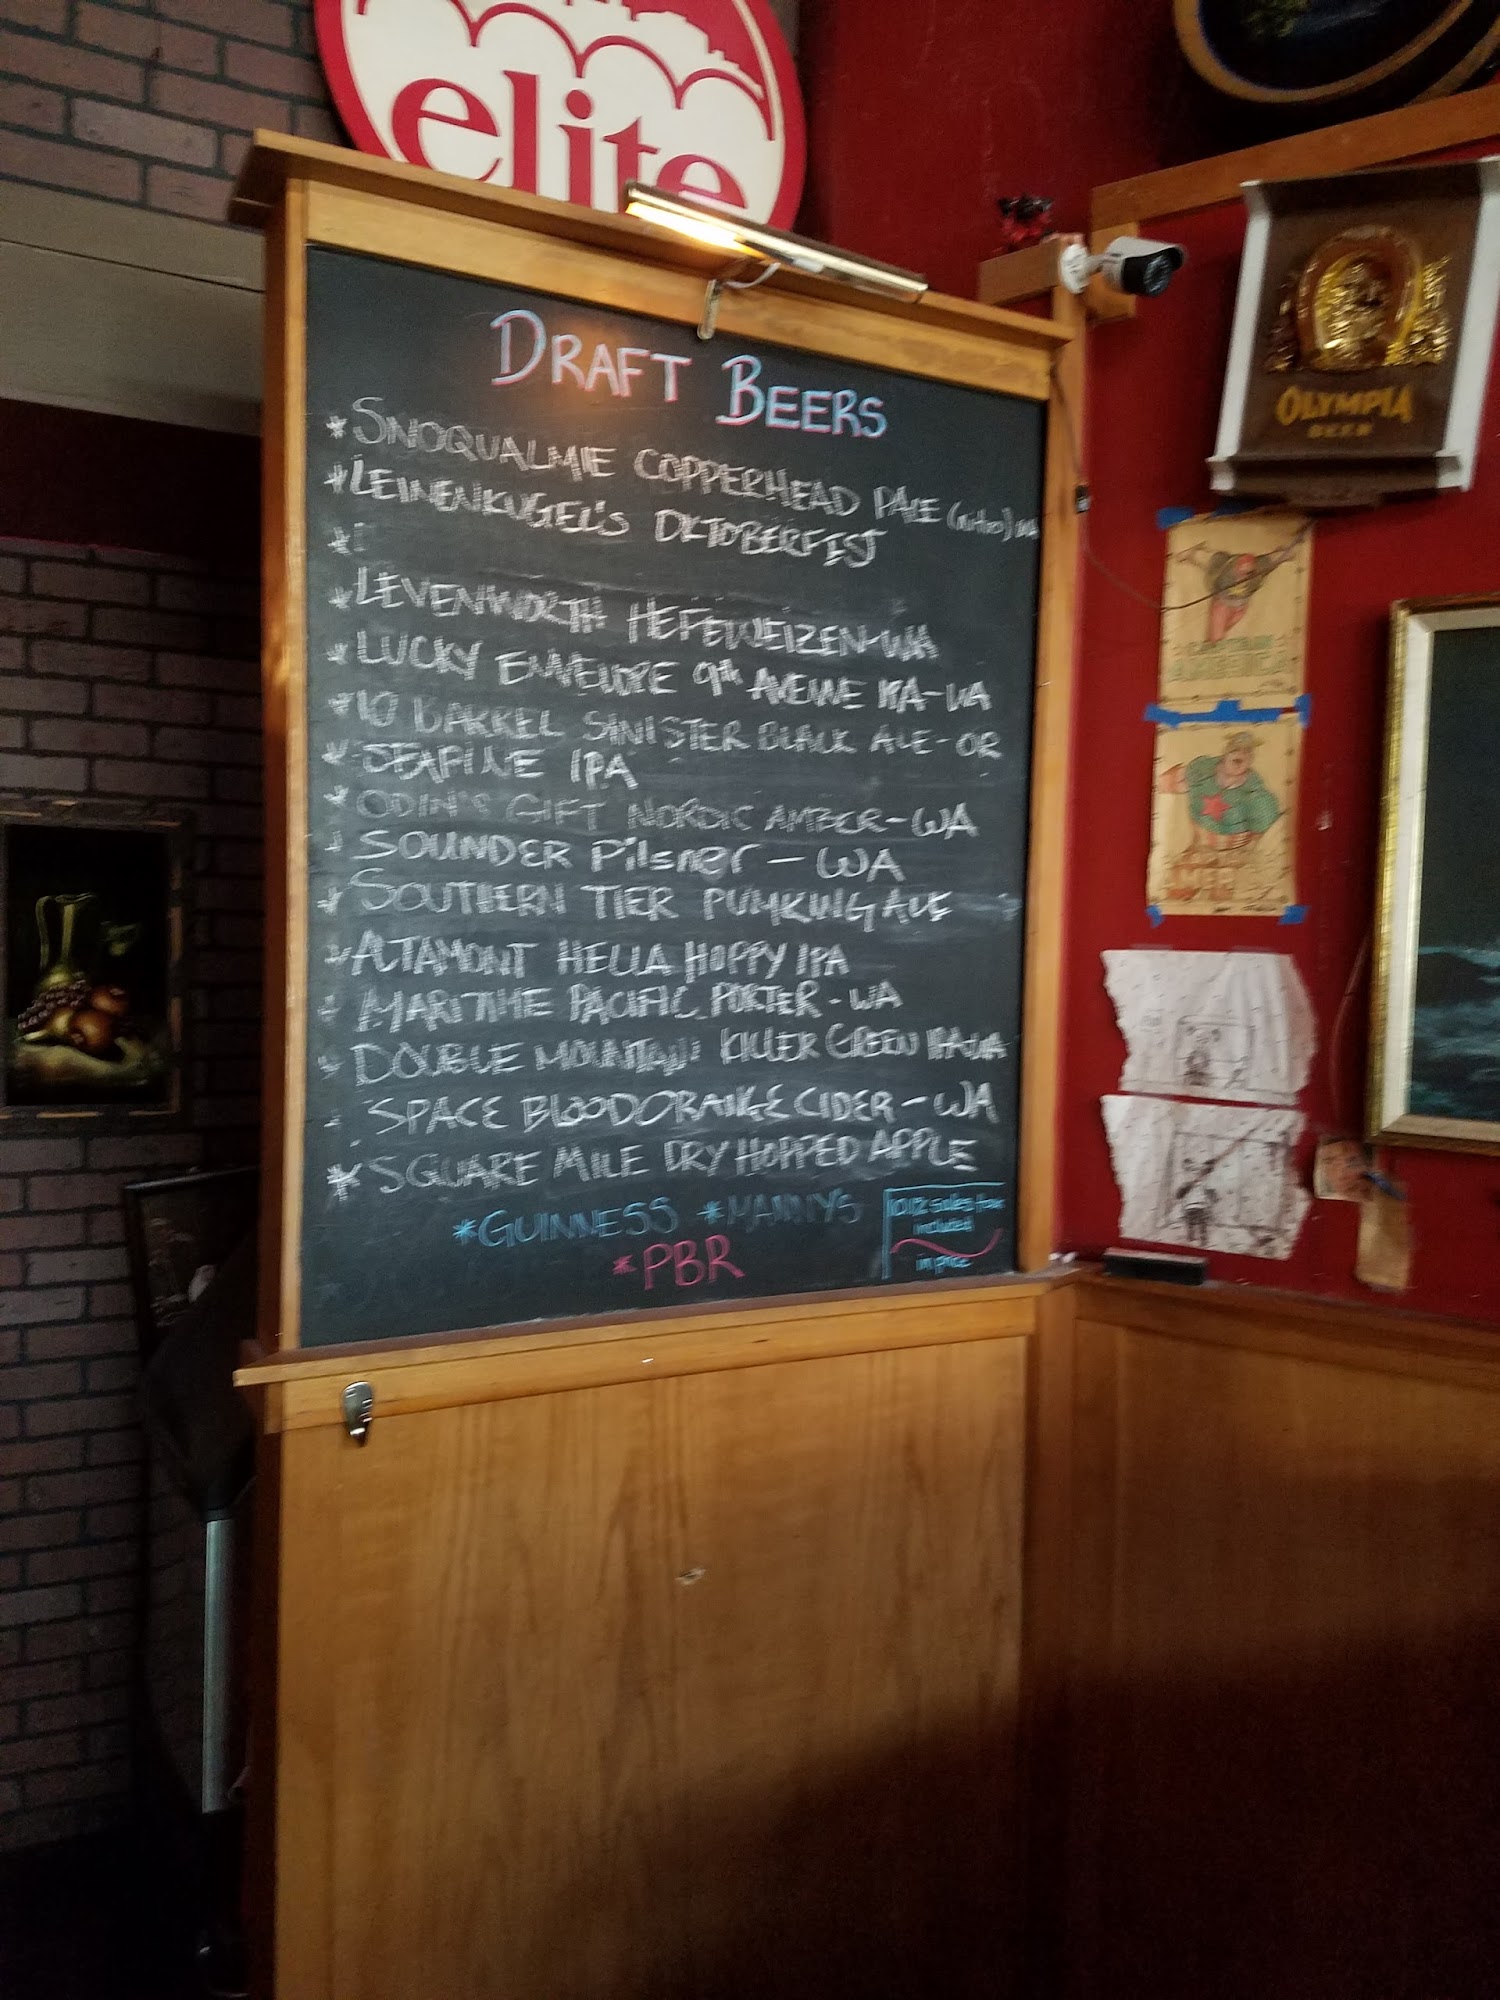 elite
DRAFT BEERS
* SNOQUALMIE COPPERHEAD PALE (nitro) WA
* LEINENKUGEL'S OKTOBERFEST
*
* LEVENWORTH HEFEWEIZEN-WA
* LUCKY ENVELOPE 9TH AVENUE IPA-WA
* 10 BARREL SINISTER BLACK ALE-OR
* SEAPINE IPA
* ODIN'S GIFT NORDIC AMBER-WA
* SOUNDER Pilsner - WA
* SOUTHERN TIER PUMKING ALE
* ALTAMONT HELLA HOPPY IPA
* MARITIME PACIFIC PORTER - WA
* DOUBLE MOUNTAIN KILLER GREEN IPA-WA
SPACE BLOOD ORANGE CIDER - WA
* SQUARE MILE DRY HOPPED APPLE
* GUINNESS * MANNYS
* PBR
sales tax
included
in price
OLYMPIA
BEER
CAPTAIN
AMERICA